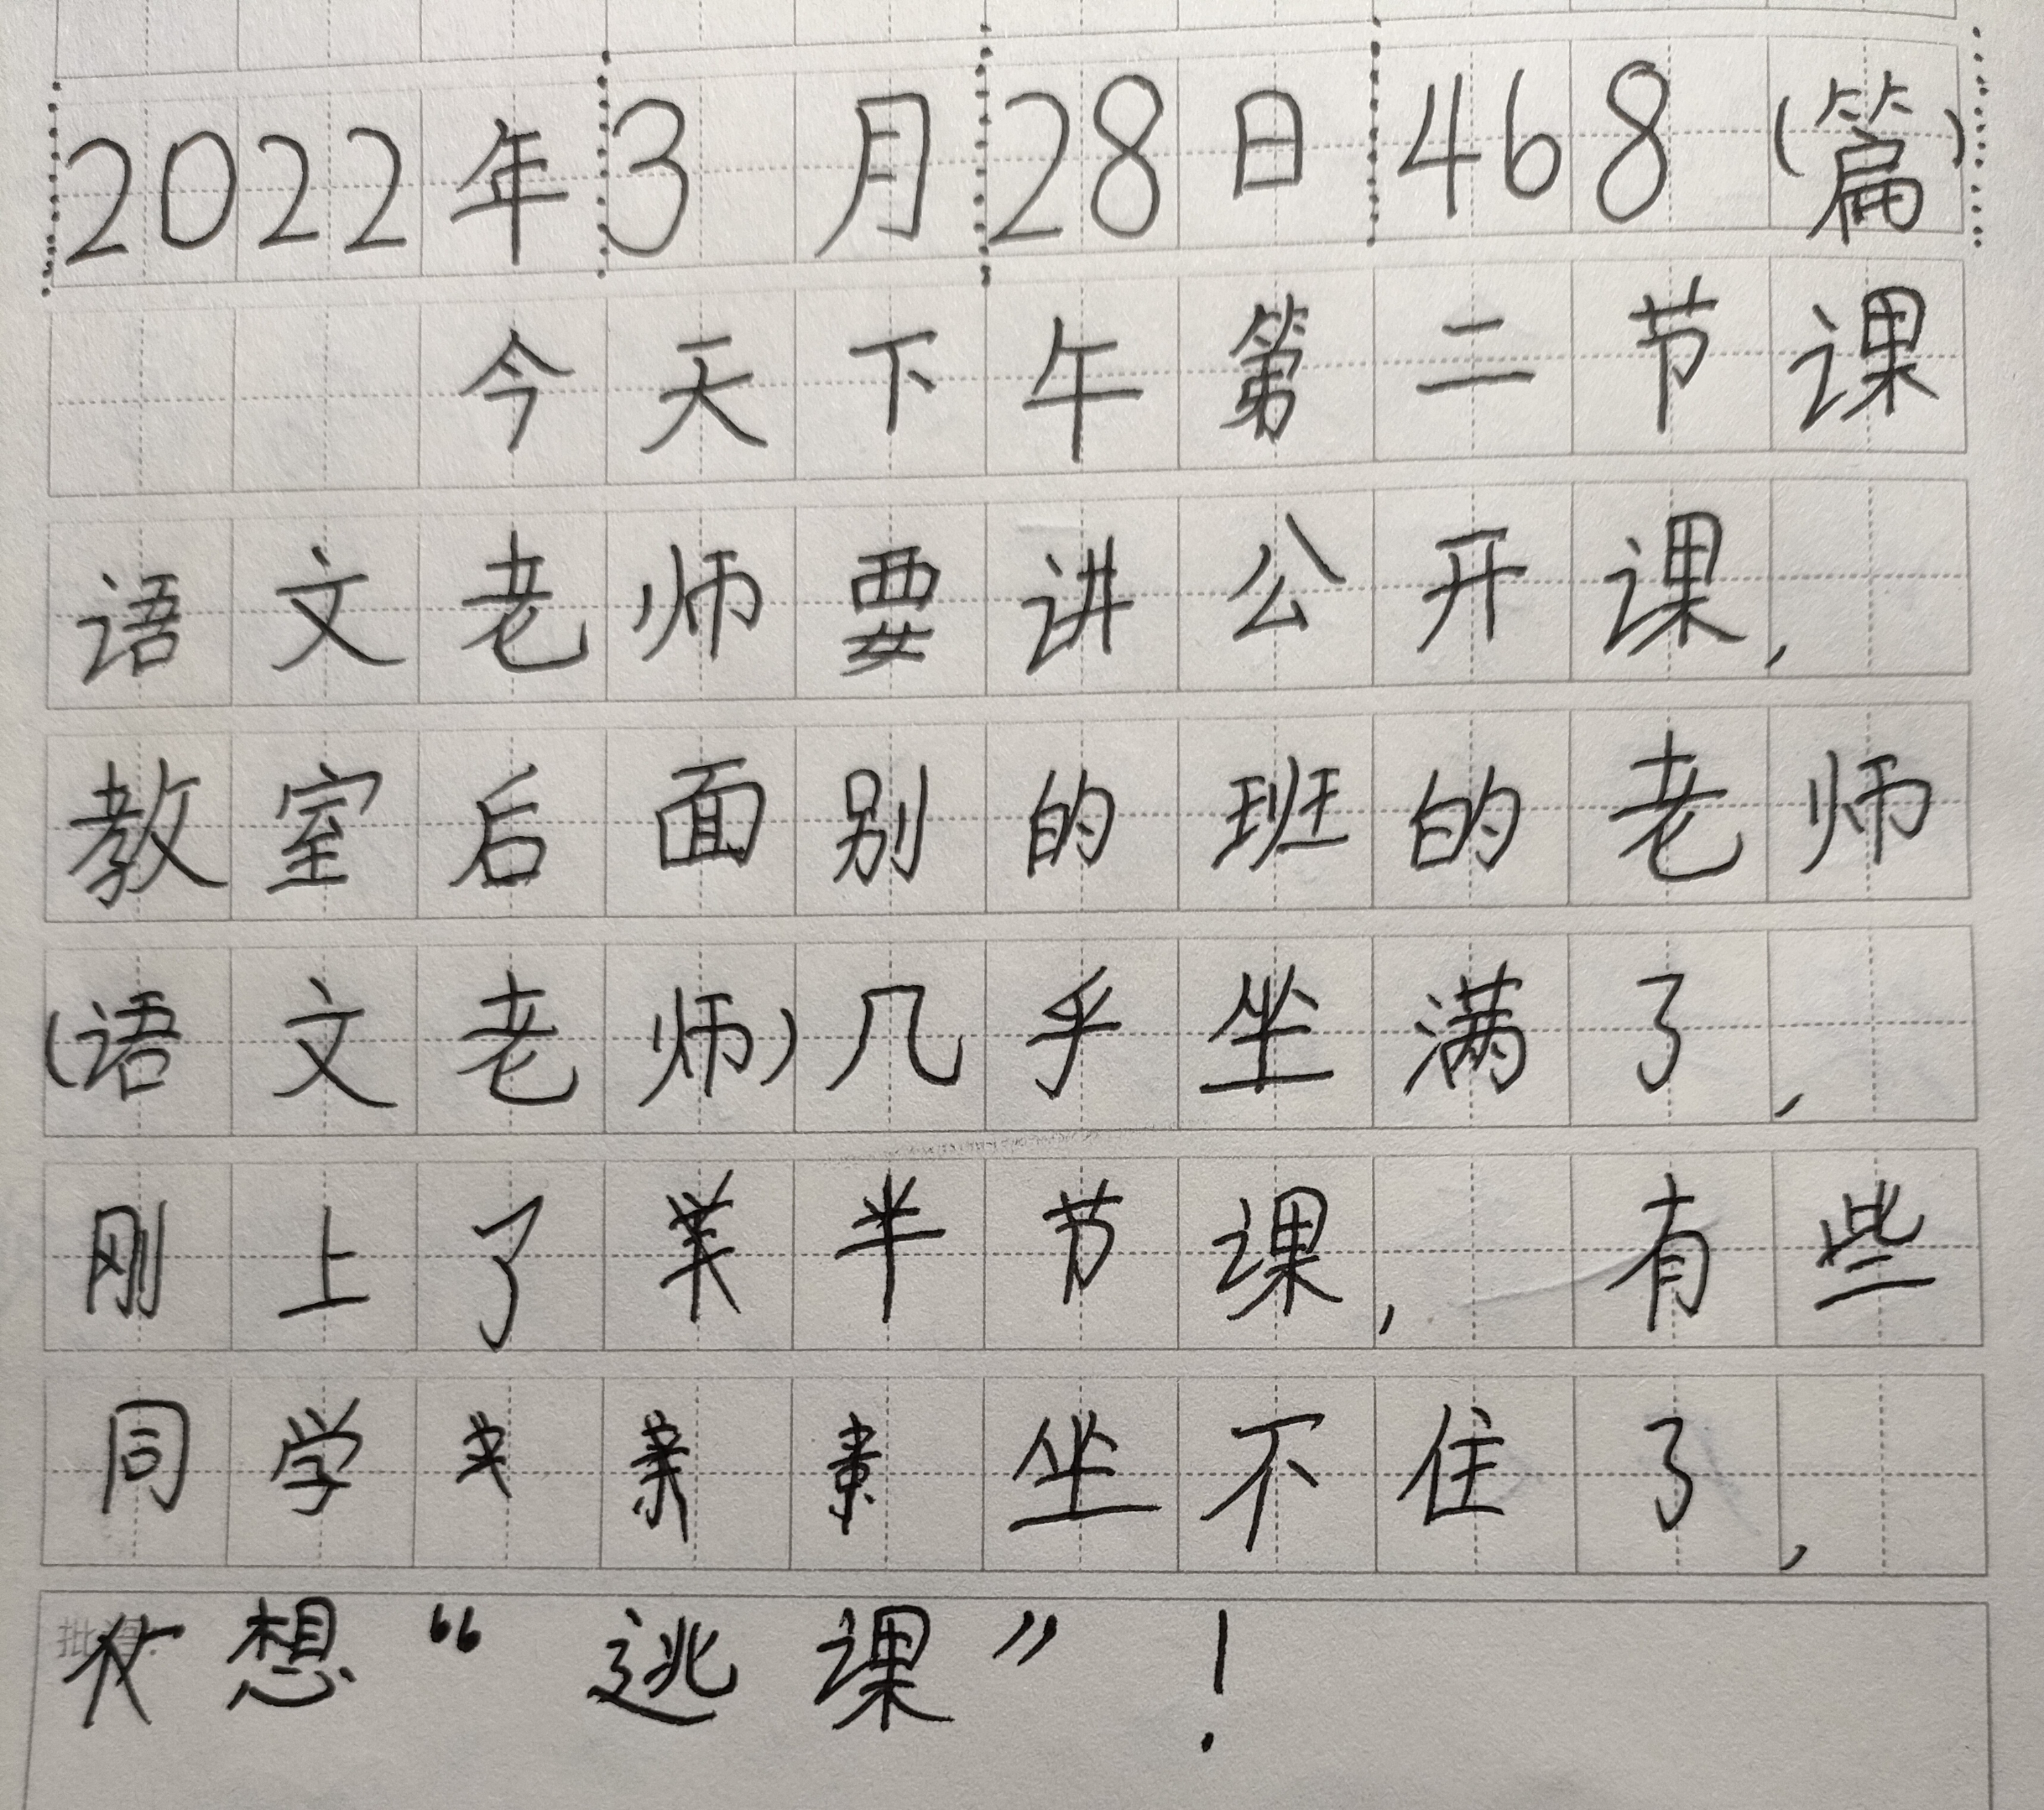 2022年3月28日468(篇)
今天下午第二节课
语文老师要讲公开课,
教室后面别的班的老师
(语文老师)几乎坐满了,
刚上了半节课,有些
同学坐不住了,
想“逃课”!